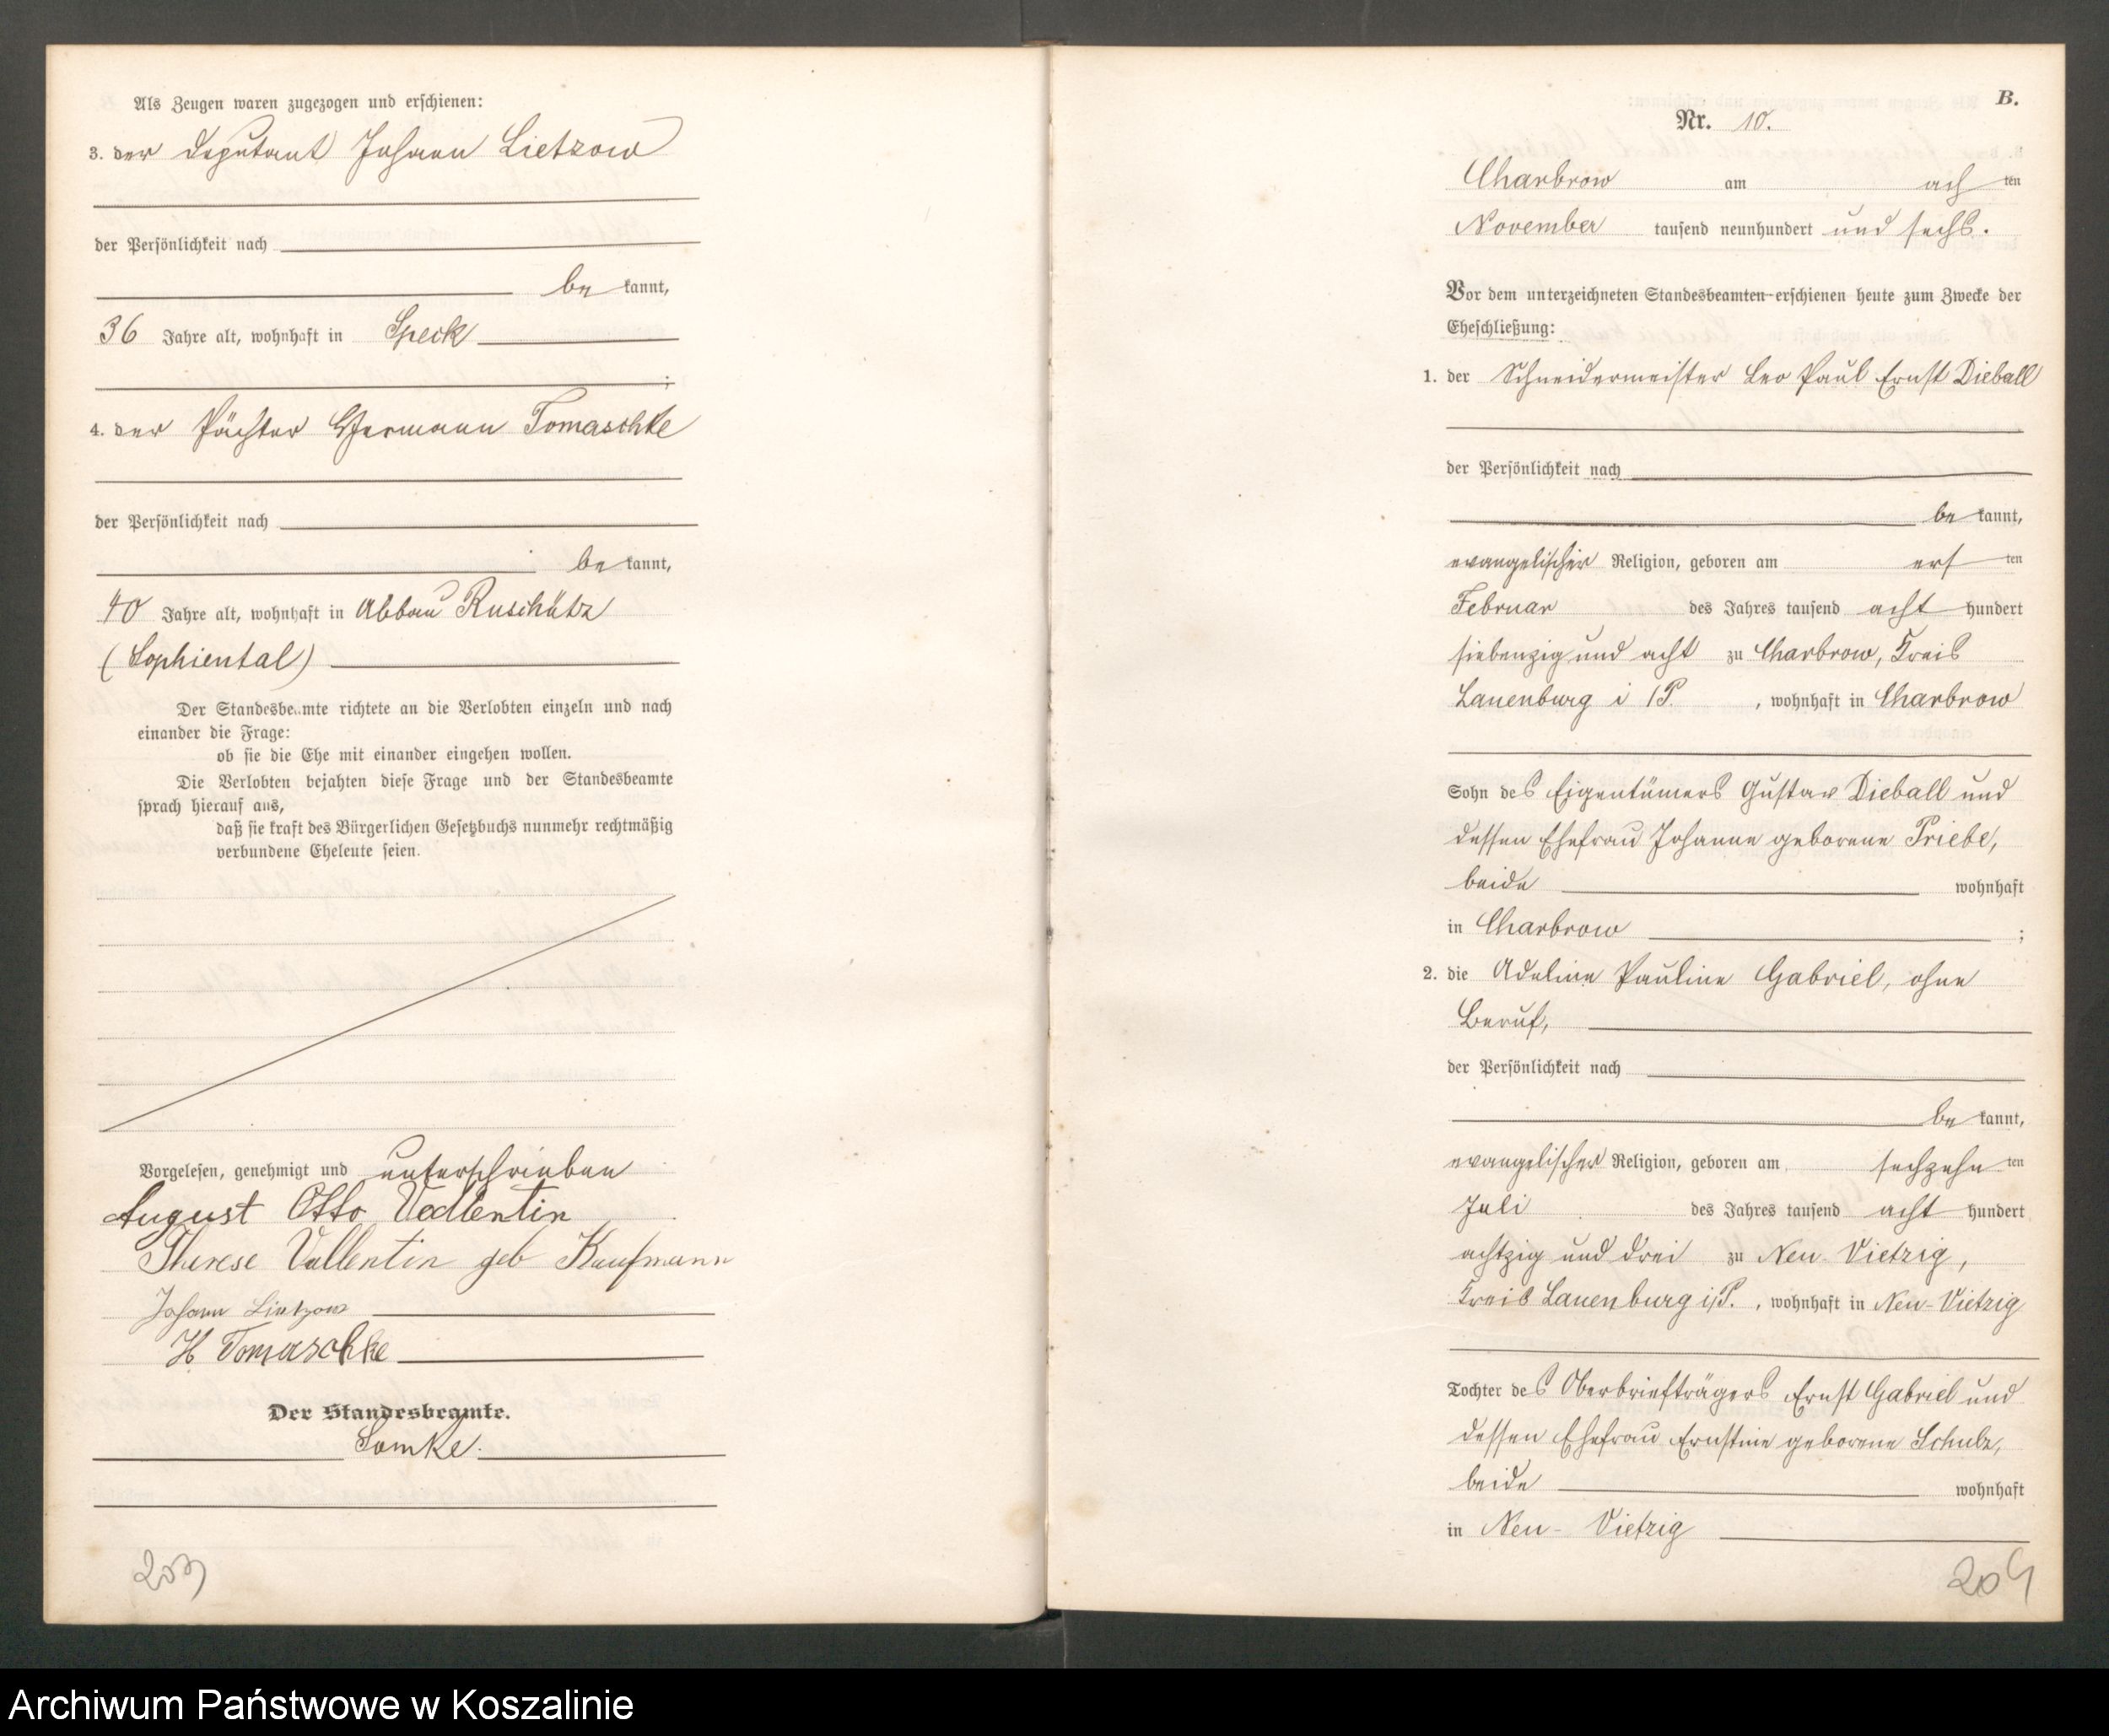 Als Zeugen waren zugezogen und erschienen:
3. der Deputant Johann Lietzow
der Persönlichkeit nach
be kannt,
36 Jahre alt, wohnhaft in Speck
;
4. der Pächter Hermann Tomaschke
der Persönlichkeit nach
be kannt,
40 Jahre alt, wohnhaft in Abbau Ruschütz
(Sophiental)
Der Standesbeamte richtete an die Verlobten einzeln und nach
einander die Frage:
ob sie die Ehe mit einander eingehen wollen.
Die Verlobten bejahten diese Frage und der Standesbeamte
sprach hierauf aus,
daß sie kraft des Bürgerlichen Gesetzbuchs nunmehr rechtmäßig
verbundene Eheleute seien.
Vorgelesen, genehmigt und unterschrieben
August Otto Vallentin
Therese Vallentin geb Kaufmann
Johann Lietzow
H Tomaschke
Der Standesbeamte.
203
B.
Nr. 10.
Charbrow am ach ten
November tausend neunhundert und sechs.
Vor dem unterzeichneten Standesbeamten erschienen heute zum Zwecke der
Eheschließung:
1. der Schneidermeister Leo Paul Ernst Dieball
der Persönlichkeit nach
be kannt,
evangelischer Religion, geboren am ers ten
Februar des Jahres tausend acht hundert
siebenzig und acht zu Charbrow, Kreis
Lauenburg i/P. , wohnhaft in Charbrow
Sohn des Eigentümers Gustav Dieball und
dessen Ehefrau Johanne geborene Priebe,
beide wohnhaft
in Charbrow ;
2. die Adeline Pauline Gabriel, ohne
Beruf,
der Persönlichkeit nach
be kannt,
evangelischer Religion, geboren am sechzehn ten
Juli des Jahres tausend acht hundert
achtzig und drei zu Neu-Vietzig,
Kreis Lauenburg i/P. , wohnhaft in Neu-Vietzig
Tochter des Oberbriefträgers Ernst Gabriel und
dessen Ehefrau Ernstine geborene Schulz,
beide wohnhaft
in Neu-Vietzig
204
Archiwum Państwowe w Koszalinie